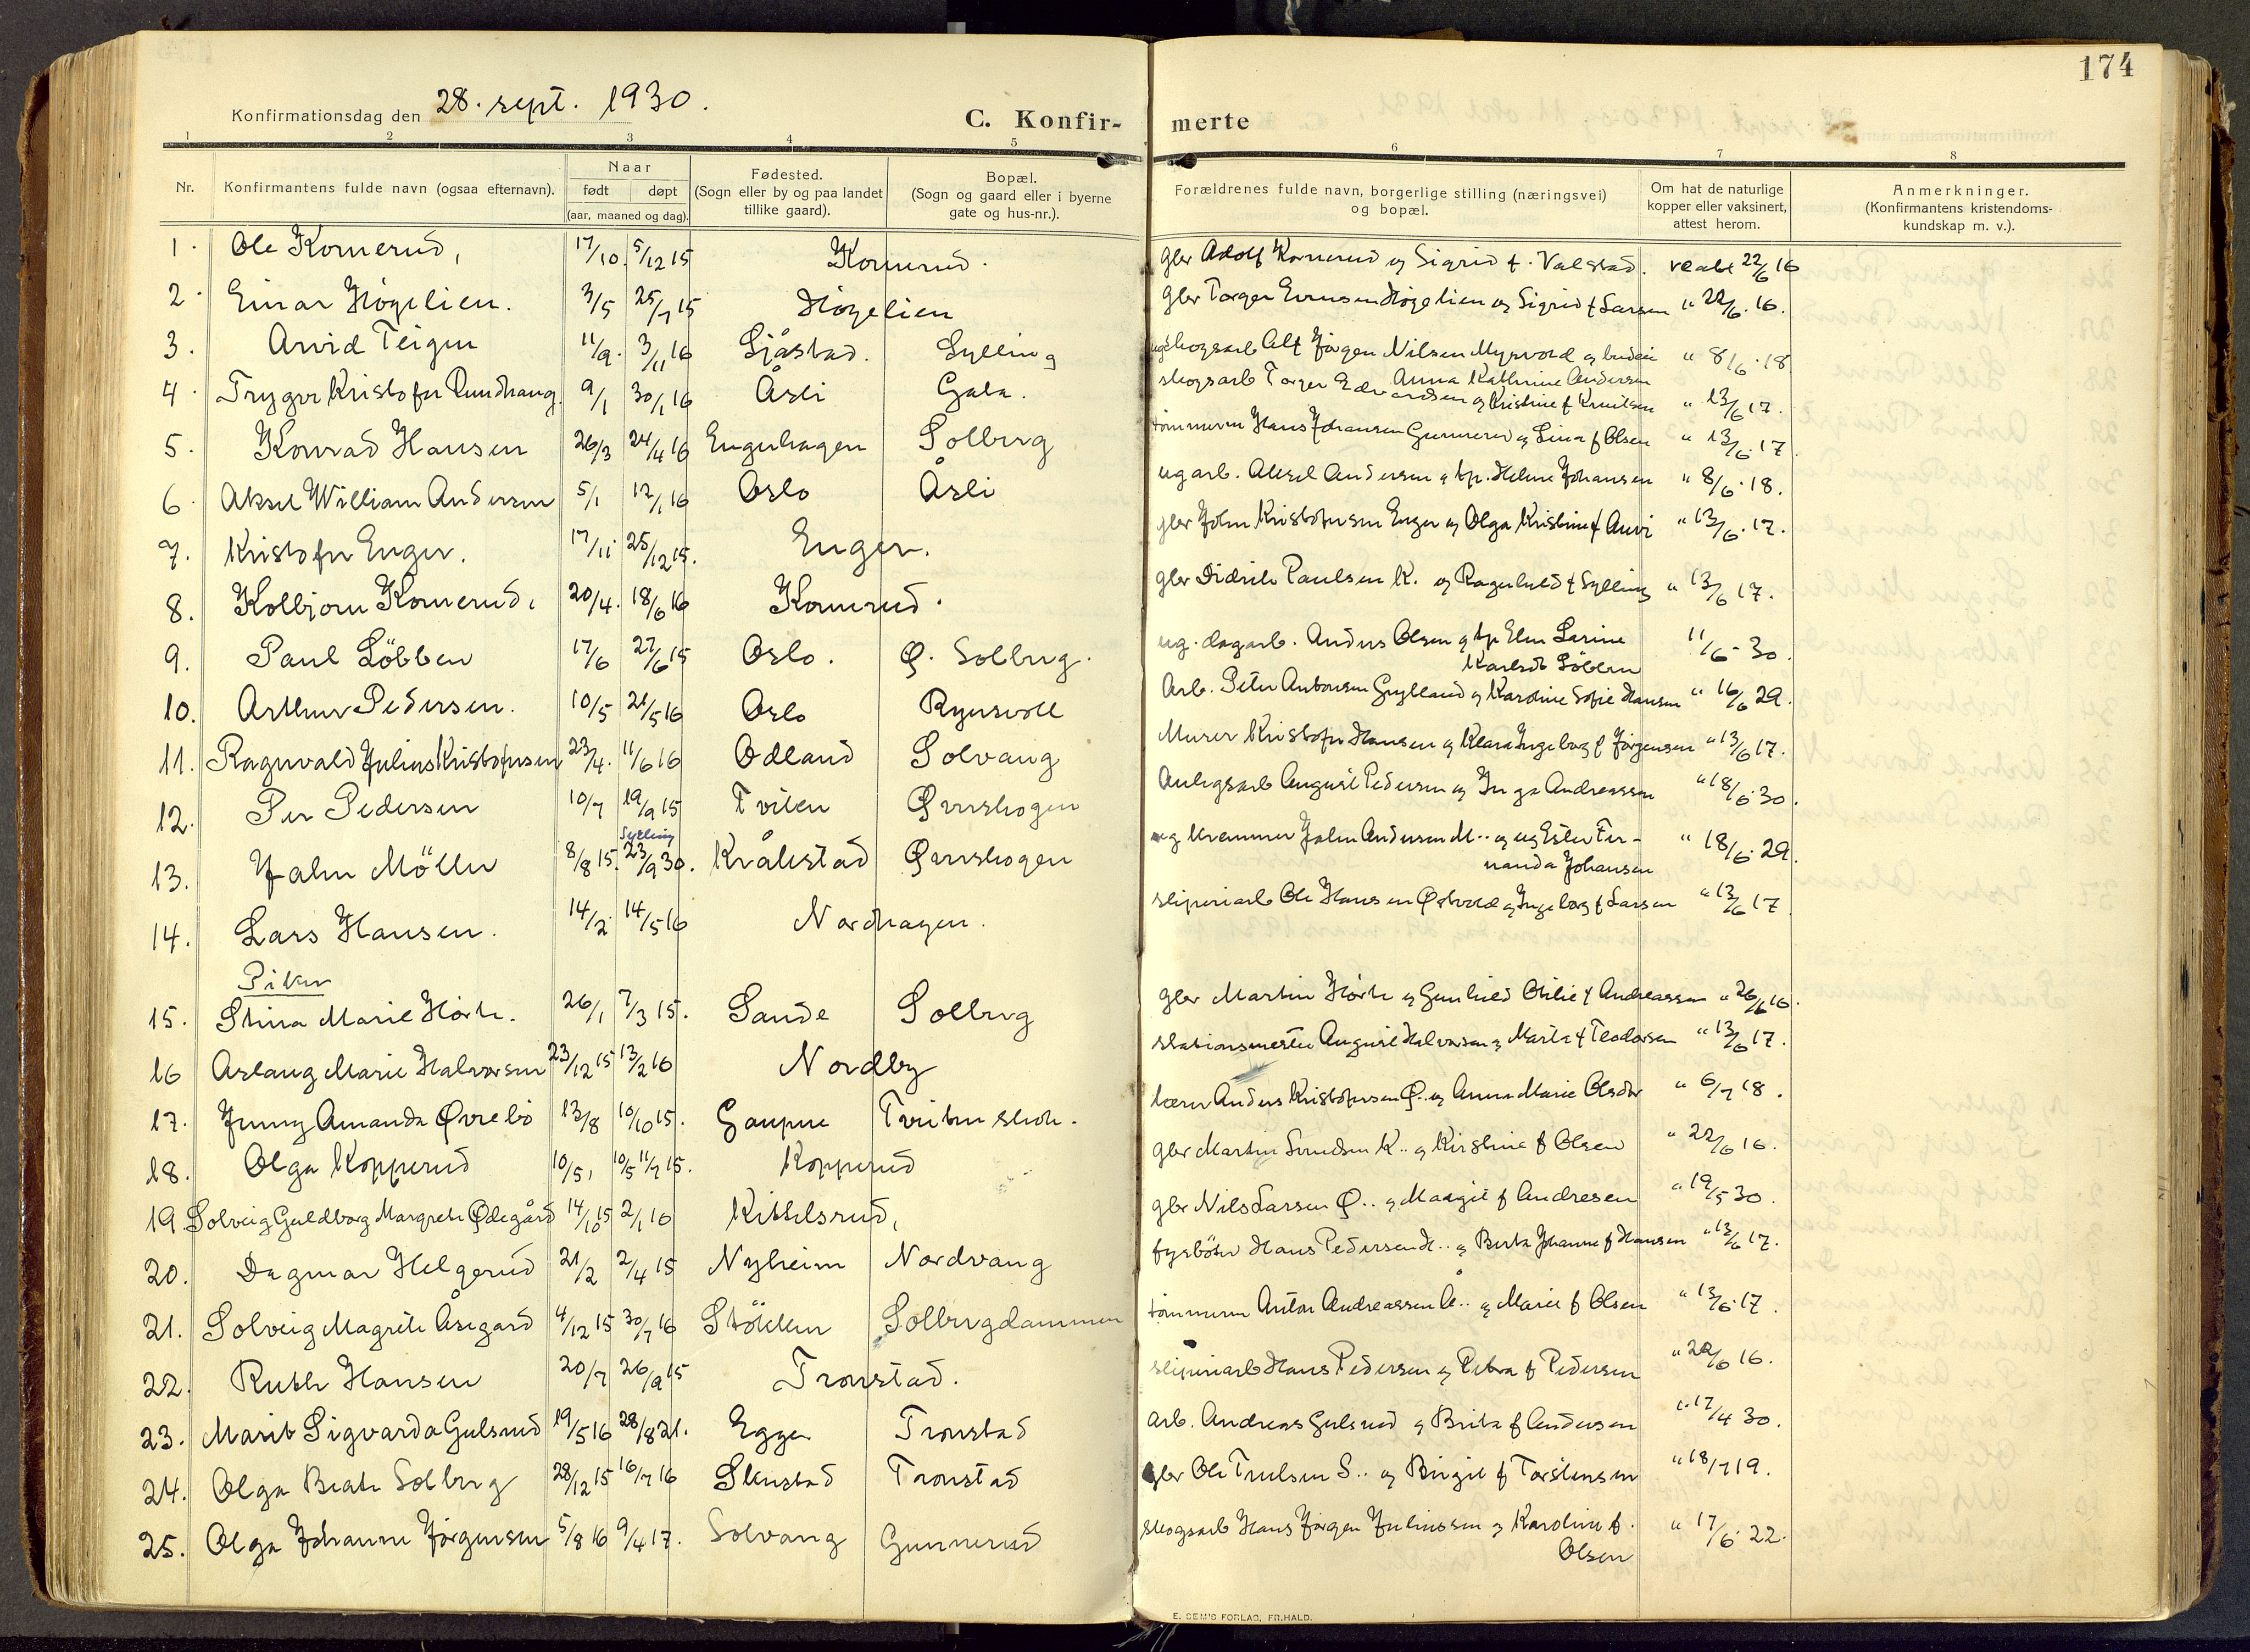 174
Konfirmationsdag den 28. sept. 1930.
C. Konfir- merte
1 2 3 4 5 6 7 8
Nr.
Konfirmantens fulde navn (ogsaa efternavn).
Naar
født døpt
(aar, maaned og dag).
Fødested.
(Sogn eller by og paa landet
tillike gaard).
Bopæl.
(Sogn og gaard eller i byerne
gate og hus-nr.).
Forældrenes fulde navn, borgerlige stilling (næringsvei)
og bopæl.
Om hat de naturlige
kopper eller vaksinert,
attest herom.
Anmerkninger.
(Konfirmantens kristendoms-
kundskap m. v.).
1. Ole Komerud, 17/10. 5/12 15 Komerud. gbr Adolf Komerud og Sigrid f. Valstad. veabt 22/6 16
2. Einar Högelien. 3/5 25/7 15 Högelien gbr Torger Evensen Högelien og Sigrid f Larsen " 22/6. 16.
3. Arvid Teigen 11/9. 3/11 16 Sjåstad. Sylling ug skogsarb Alf Jörgen Nilsen Myrvold og budeie " 8/6. 18
Anna Kathrine Andersen
4. Trygve Kristofer Rundhaug. 9/1 30/1 16 Åsli Gata. skogsarb Torger Edvardsen og Kristine f Knutsen " 13/6 17.
5. Konrad Hansen 26/3 24/4 16 Engerhagen Solberg tömmerm Hans Johansen Gunnerud og Lina f Olsen " 13/6. 17
6. Aksel William Andersen 5/1 12/1 16 Oslo Åsli ug arb. Aksel Andersen og tp. Helene Johansen " 8/6. 18.
7. Kristofer Enger. 17/11. 25/12 15. Enger. gbr John Kristofersen Enger og Olga Kristine f Auvi " 13/6. 17.
8. Kolbjørn Komerud. 20/4. 18/6 16 Komerud. gbr Didrik Paulsen K. og Ragnhild f Sylling " 13/6 17.
9. Paul Löbben 17/6 27/6 15 Oslo. Ø. Solberg. ug. dagarb. Anders Olsen og tp Elen Larine 11/6. 30.
Karlsdt Löbben
10. Arthur Pedersen. 10/5 21/5 16 Oslo Rynsvoll Arb. Peter Antonsen Grylland og Karoline Sofie Hansen " 16/6 29.
11. Ragnvald Julius Kristofersen 23/4. 11/6 16 Odland Solvang Murer Kristofer Hansen og Klara Ingeborg f Jörgensen " 13/6 17.
12. Per Pedersen 10/7 19/9 15 Tviten Ørnskogen Anlegsarb August Pedersen og Inga Andreassen " 18/6. 30.
Sylling
13. Jahn Möller 8/8 15. 23/9 30. Kråkstad Ørnskogen ug kremmer John Andersen M.. og ug Ester Fer- " 18/6. 29.
nanda Johansen
14. Lars Hansen. 14/2 14/5 16 Nordhagen. sliperiarb Ole Hansen Östvold og Ingeborg f Larsen " 13/6 17
Piker
15. Stina Marie Hörte. 26/1 7/3 15. Sande Solberg gbr Martin Hörte og Gunhild Otilie f Andreassen " 26/6 16.
16 Aslaug Marie Halvorsen 23/12 15 13/2 16 Nordby stationsmester August Halvorsen og Marta f Teodorsen " 13/6 17.
17. Jenny Amanda Øvrebö 13/8 10/10 15. Gaupne Tviten skole. lærer Anders Kristofersen Ø.. og Anna Marie Olsdtr " 6/7 18.
18. Olga Kopperud 10/5, 10/5 11/7 15. Kopperud gbr Martin Svendsen K.. og Kirstine f Olsen " 22/6 16.
19 Solveig Guldborg Margrete Ødegård 14/10 15 2/1 16 Kittelsrud, gbr Nils Larsen Ø.. og Margit f Andresen " 19/5 30.
20. Dagmar Helgerud 21/2 2/4 15 Nyheim Nordvang fyrböter Hans Pedersen H.. og Berta Johanne f Hansen " 13/6 17.
21. Solveig Magrete Åsegard 4/12 15 30/7 16 Stökken Solbergdammen tömmerm Anton Andreassen Å.. og Marie f Olsen " 13/6. 17.
22. Ruth Hansen 20/7 26/9 15 Tronstad. sliperiarb Hans Pedersen og Petra f Pedersen " 22/6 16.
23. Marit Sigvarda Gulsrud 19/5 16 28/8 21. Egge Tronstad arb. Andreas Gulsrud og Brita f Andersen " 17/4 30.
24. Olga Beate Solberg 28/12 15 16/7 16 Stenstad Tronstad gbr Ole Truelsen S.. og Birgit f Torstensen " 18/7 19.
25. Olga Johanne Jörgensen 5/8 16 9/4 17. Solvang Gunnerud skogsarb Hans Jörgen Juliussen og Karoline f. " 17/6. 22.
Olsen
E. SEM'S FORLAG, FR.HALD.